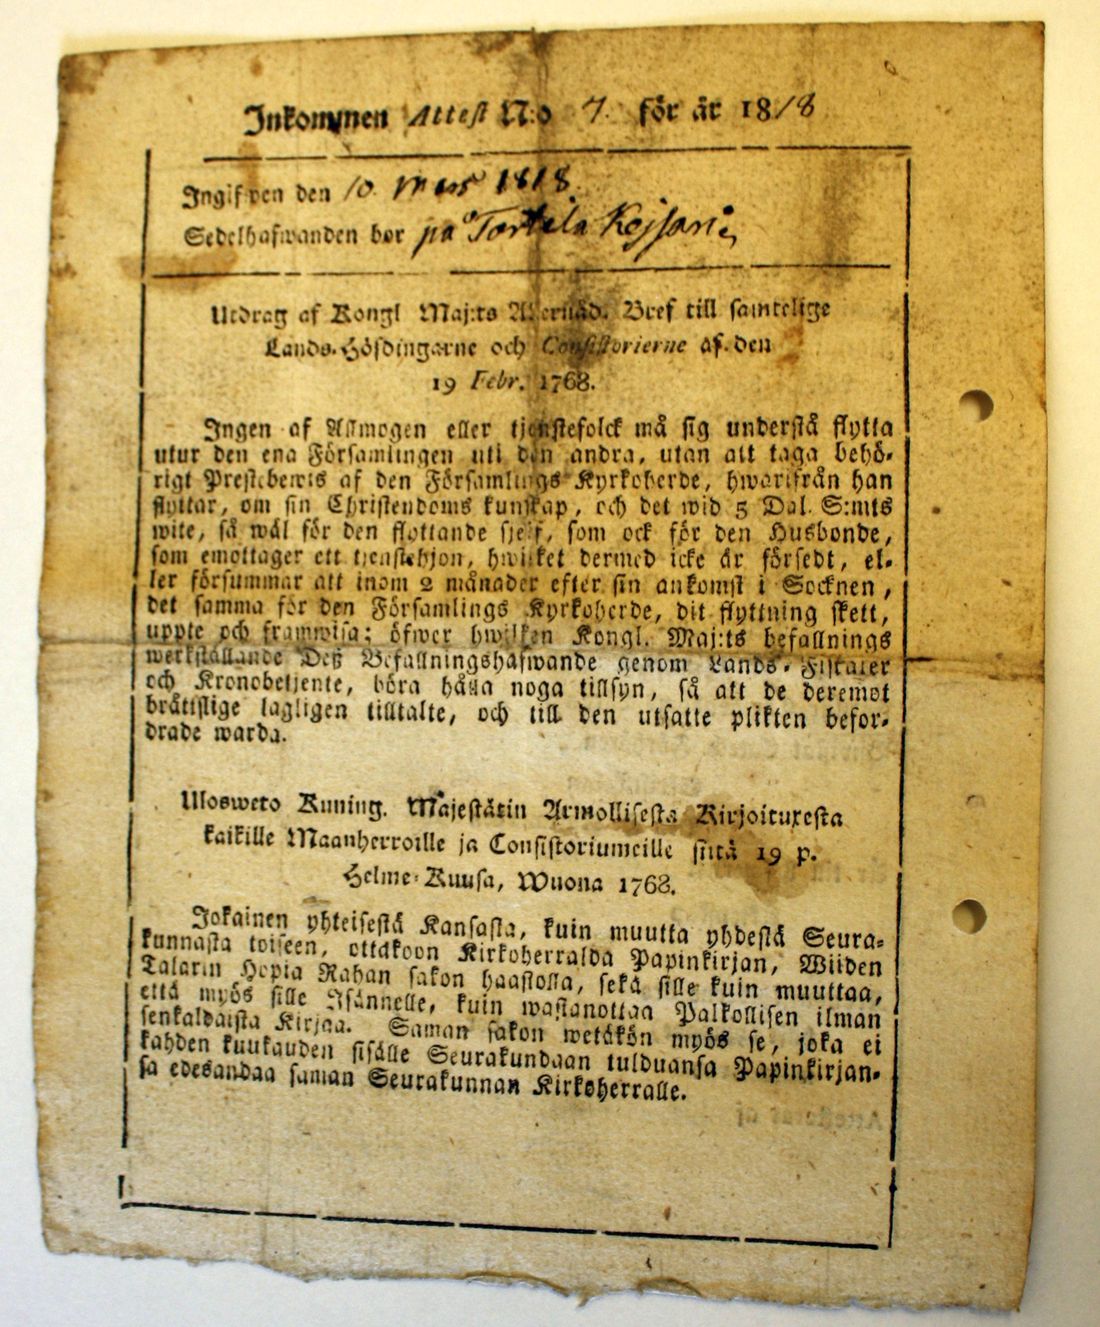 Inkommen Attest N:o 7. för år 1818
Ingifven den 10 Mars 1818.
Sedelhafwanden bor på Tortila Kejsari
Utdrag af Kongl Maj:ts Allernåd. Bref till samtelige
Lands-Höfdingarne och Consistorierne af den
19 Febr. 1768.
Ingen af Allmogen eller tjenstefolck må sig understå flytta
utur den ena Församlingen uti den andra, utan att taga behö-
rigt Prestebewis af den Församlings Kyrkoherde, hwarifrån han
flyttar, om sin Christendoms kunskap, och det wid 5 Dal. S:mts
wite, så wäl för den flyttande sjelf, som ock för den Husbonde,
som emottager ett tjenstehjon, hwilket dermed icke är försedt, el-
ler försummar att inom 2 månader efter sin ankomst i Socknen,
det samma för den Församlings Kyrkoherde, dit flyttning skett,
uppte och framwisa; öfwer hwilken Kongl. Maj:ts befallnings
werkställande Deß Befallningshafwande genom Lands-Fiskaler
och Kronobetjente, böra hålla noga tillsyn, så att de deremot
bråttslige lagligen tilltalte, och till den utsatte plikten befor-
drade warda.
Ulosweto Kuning. Majestätin Armollisesta Kirjoituxesta
kaikille Maanherroille ja Consistoriumeille siitä 19 p.
Helme-Kuusa, Wuona 1768.
Jokainen yhteisestä Kansasta, kuin muutta yhdestä Seura-
kunnasta toiseen, ottakoon Kirkoherralda Papinkirjan, Wiiden
Talarin Hopia Rahan sakon haastolla, sekä sille kuin muuttaa,
että myös sille Isännelle, kuin wastanottaa Palkollisen ilman
senkaldaista Kirjaa. Saman sakon wetäkön myös se, joka ei
kahden kuukauden sisälle Seurakundaan tulduansa Papinkirjan-
sa edesandaa saman Seurakunnan Kirkoherralle.